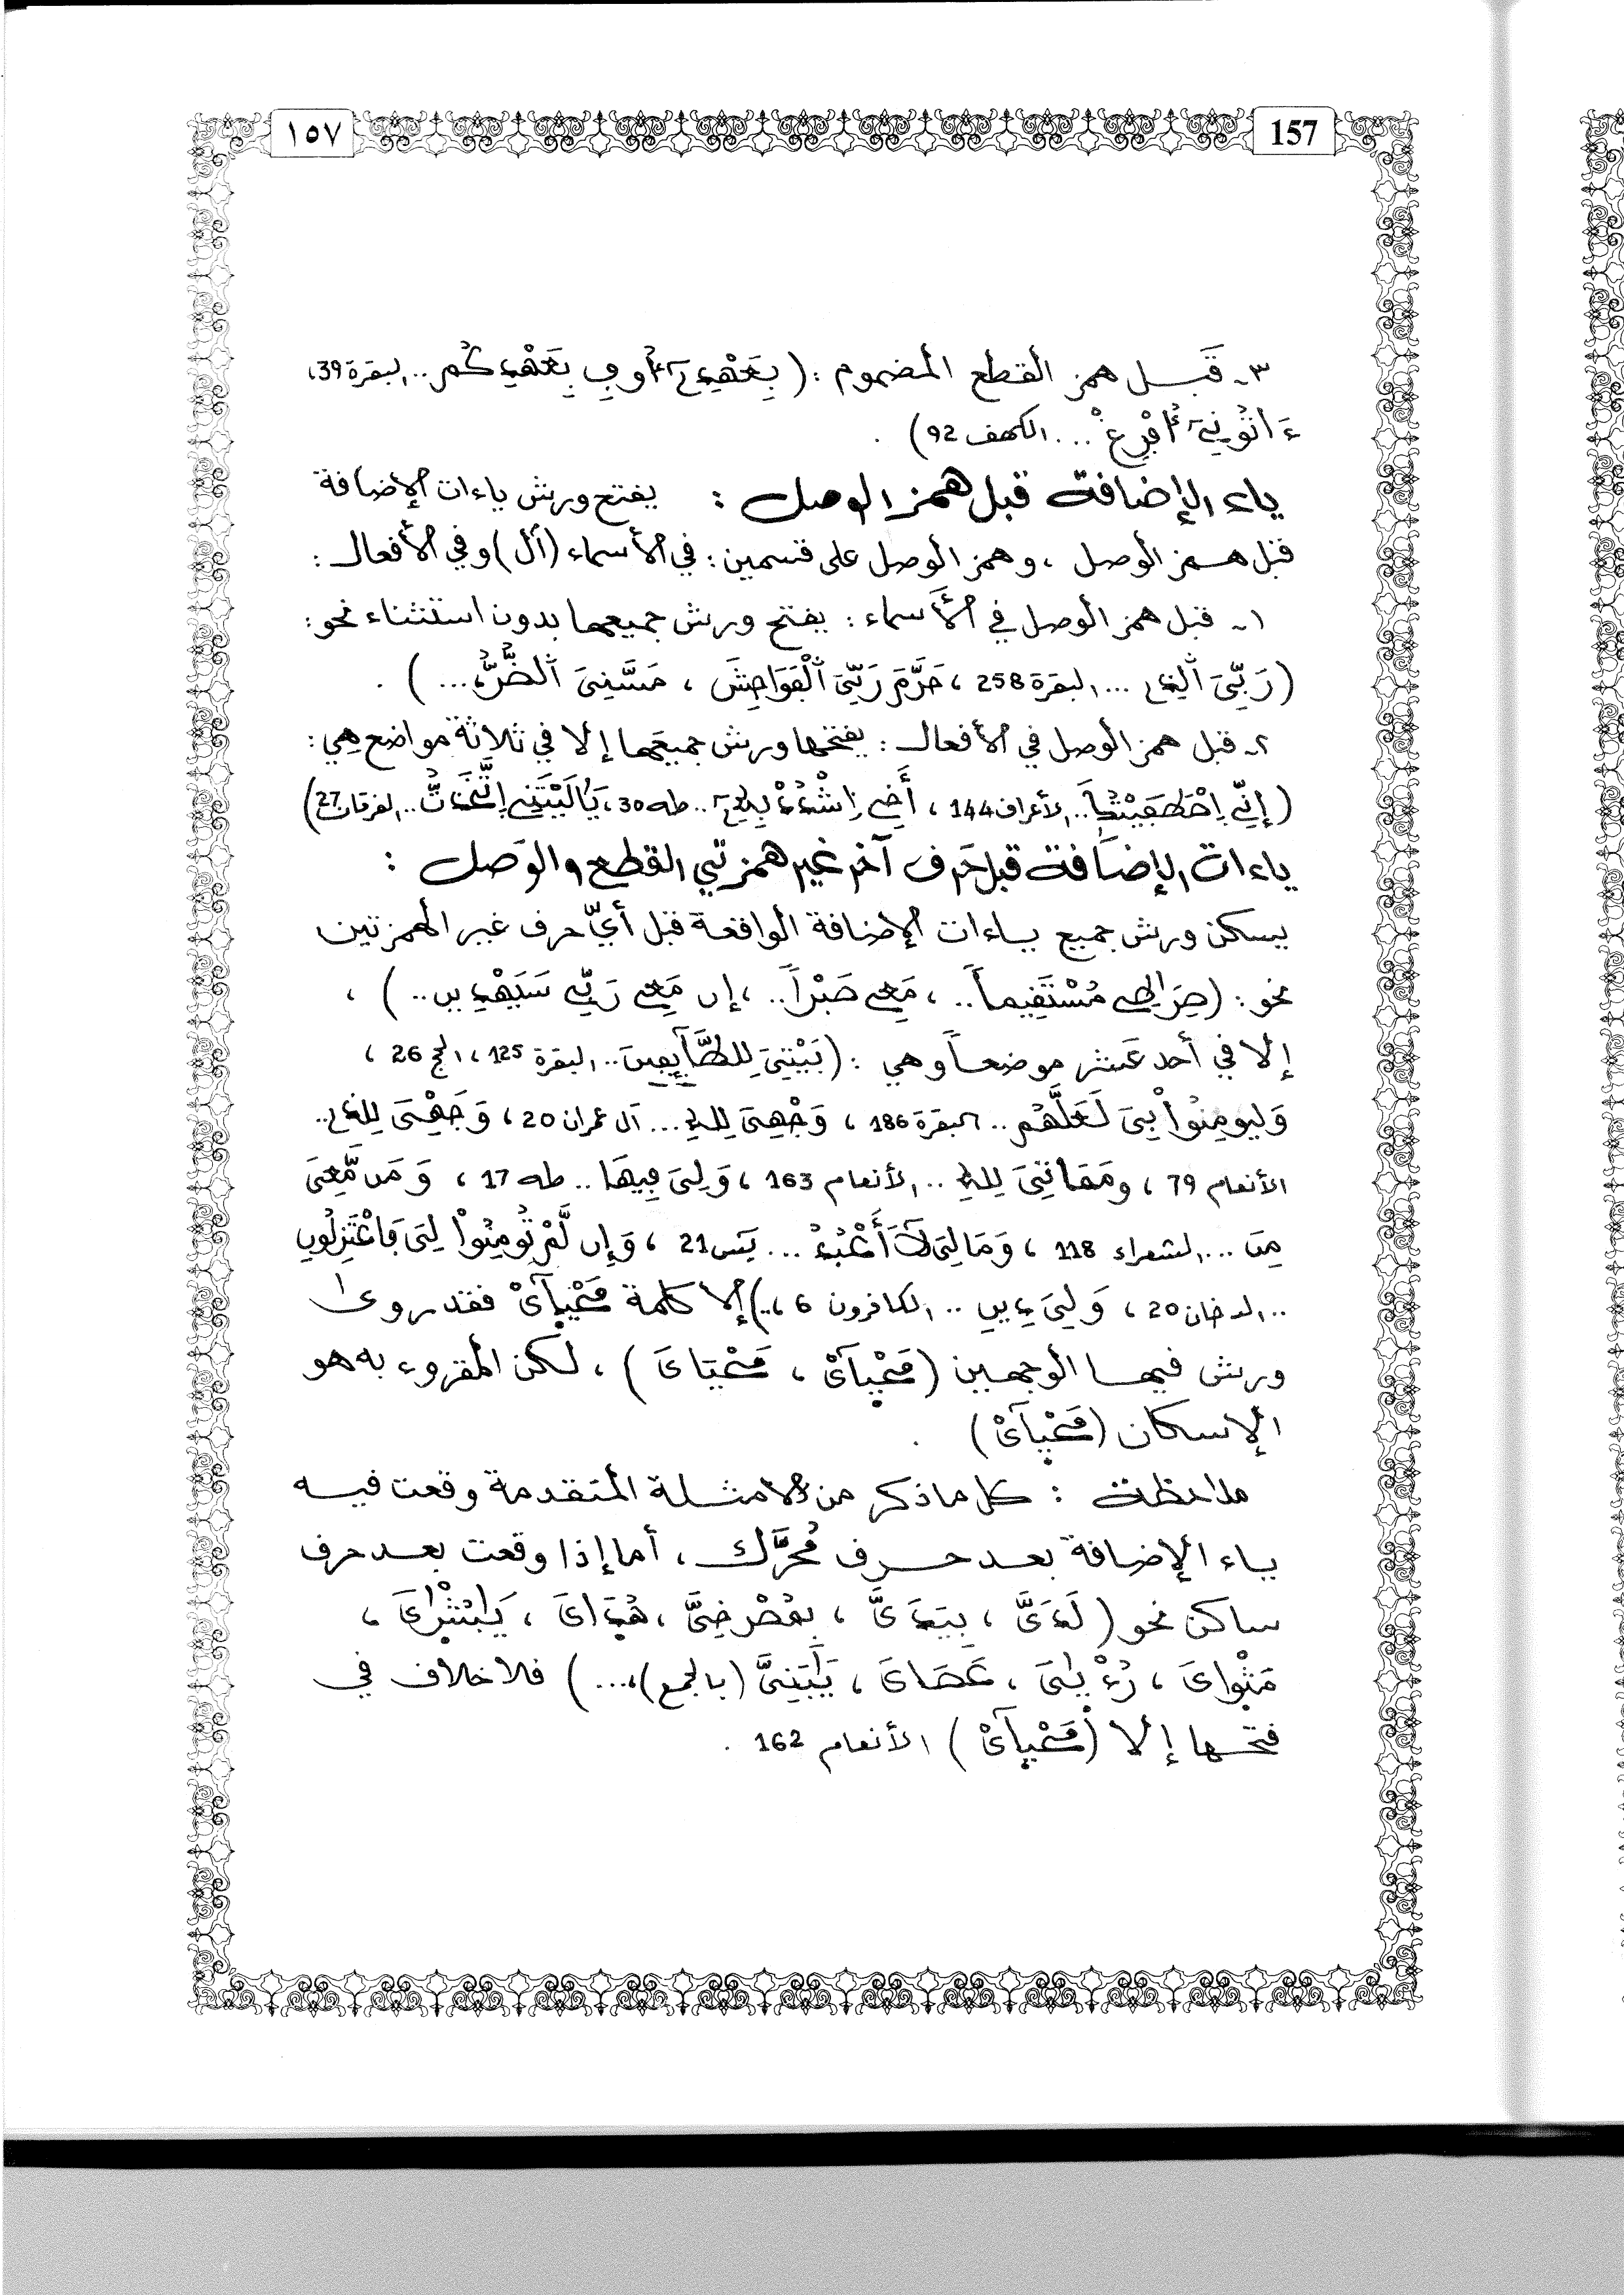 157 ١٥٧
٣ـ قَبل همز القطع المضموم : ( بِعَهْدِيَ أُوفِ بِعَهْدِكُم .. البقرة 39،
ءَاتُونِيَ أُفْرِغْ ... الكهف 92 ) .
ياء الإضافة قبل همز الوصل : يفتح ورش ياءات الإضافة
قبل همز الوصل ، وهمز الوصل على قسمين : في الأسماء (أل) وفي الأفعال :
١ـ قبل همز الوصل في الأَسماء : يفتح ورش جميعها بدون استثناء نحو :
( رَبِّيَ اَلذِے ... البقرة 258 ، حَرَّمَ رَبِّيَ اَلْفَوَاحِشَ ، مَسَّنِيَ اَلضُّرُّ ... ) .
٢ـ قبل همز الوصل في الأفعال : يفتحها ورش جميعَها إلا في ثلاثة مواضع هِي :
( إِنِّے اِصْطَفَيْتُكَ .. الأعراف 144 ، أَخِے اِشْدُدْ بِهِۦٓ .. طه 30 ، يَٰلَيْتَنِے اِتَّخَذتُّ .. الفرقان 27 )
ياءات الإضَافة قبل حَرف آخر غير همزتي القطع والوَصل :
يسكن ورش جميع ياءات الإضافة الواقعة قبل أيّ حرف غير الهمزتين
نحو : ( صِرَٰطِے مُسْتَقِيماً .. ، مَعِے صَبْراً .. ، إِن مَعِے رَبِّے سَيَهْدِينِ .. ) ،
إلا في أحد عَشر موضعاً وهي : ( بَيْتِيَ لِلطَّآئِفِينَ .. البقرة 125 ، الحج 26 ،
وَلْيُومِنُواْ بِيَ لَعَلَّهُمْ .. البقرة 186 ، وَجْهِيَ لِلهِ ... آل عمران 20 ، وَجْهِيَ لِلذِے ..
الأنعام 79 ، ومَمَاتِيَ لِلهِ .. الأنعام 163 ، وَلِيَ فِيهَا .. طه 17 ، وَمَن مَّعِيَ
مِنَ ... الشعراء 118 ، وَمَا لِيَ لَآ أَعْبُدُ ... يَس 21 ، وَإِن لَّمْ تُومِنُواْ لِيَ فَاعْتَزِلُونِ
.. الدخان 20 ، وَلِيَ دِينِ .. الكافرون 6 ،.. ) إلا كلمة مَحْيَآيْ فقد روى
ورش فيها الوجهين ( مَحْيَآيْ ، مَحْيَايَ ) ، لكن المقروء به هو
الإسكان ( مَحْيَآيْ ) .
ملاحظة : كل ما ذكر من الأمثلة المتقدمة وقعت فيه
ياء الإضافة بعد حرف مُحرَّك ، أما إذا وقعت بعد حرف
ساكن نحو ( لَدَيَّ ، بِيَدَيَّ ، بِمُصْرِخِيَّ ، هُدَايَ ، يَٰبُشْرَايَ ،
مَثْوَايَ ، رُءْيَٰيَ ، عَصَايَ ، يَٰبَنِيَّ (بالجمع) ،... ) فلا خلاف في
فتحها إلا ( مَحْيَآيْ ) الأنعام 162 .